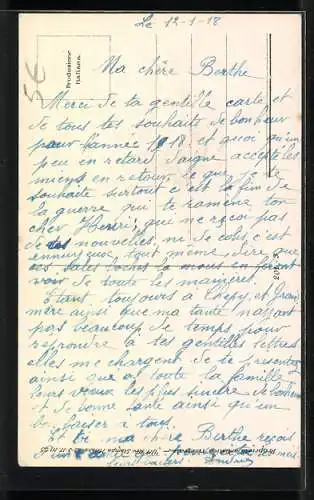 Le 12-1-18
5€
Produzione
Italiana.
Ma chère Berthe
Merci de ta gentille carte et
de tous tes souhaits de bonheur
pour l'année 1918 et quoi qu'un
peu en retard daigne accepté les
miens en retour, ce que je
souhaite surtout c'est la fin de
la guerre qui te ramène ton
cher Henri, que ne reçoi pas
de tes nouvelles, ni de cola, c'est
ennuyeux tout même, dire que
ces sales boches la nous en font
voir de toute les manières.
Etant toujours à et Grand
mère ainsi que ma tante n'ayant
pas beaucoup de temps pour
repondre à tes gentilles lettres
elles me chargent de te presenter
ainsi que a toute la famille
leurs vœux les plus sincère de bonheur
et de bonne sante ainsi qu'un
baiser a tous.
Et toi ma chère Berthe reçois
mes